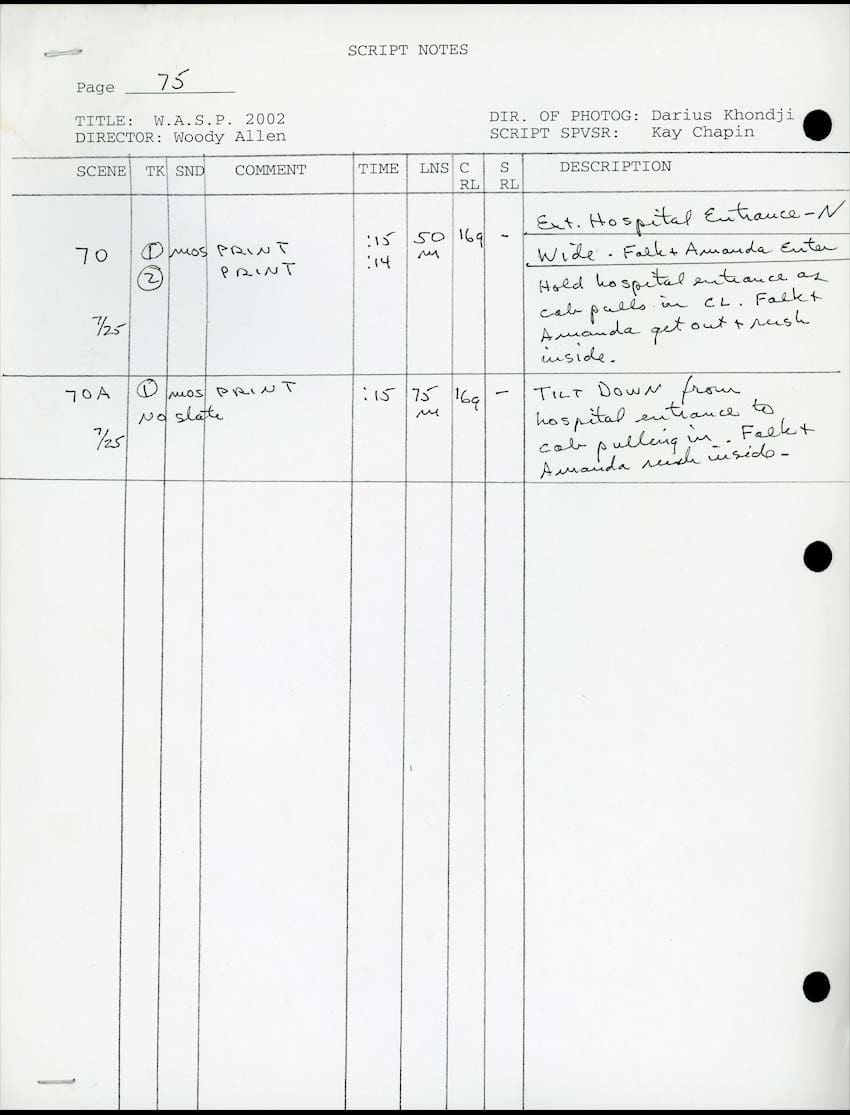 SCRIPT NOTES
Page 75
TITLE: W.A.S.P. 2002
DIRECTOR: Woody Allen
DIR. OF PHOTOG: Darius Khondji
SCRIPT SPVSR: Kay Chapin
SCENE TK SND COMMENT TIME LNS C RL S RL DESCRIPTION
Ext. Hospital Entrance-N
70 1 mos PRINT :15 50 m 169 - Wide. Falk + Amanda Enter
2 PRINT :14
Hold hospital entrance as
cab pulls in CL. Falk +
7/25 Amanda get out + rush
inside.
70A 1 mos PRINT :15 75 m 169 - TILT DOWN from
No slate hospital entrance to
7/25 cab pulling in. Falk +
Amanda rush inside-